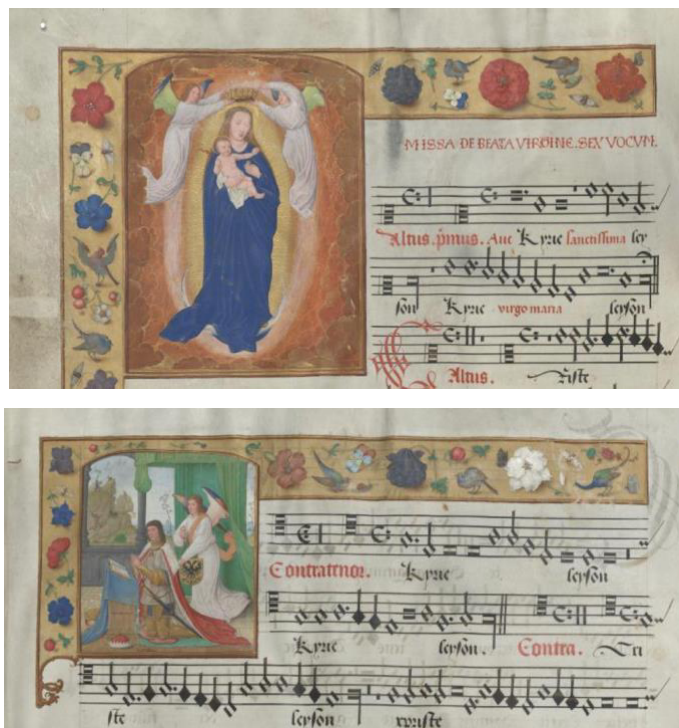 MISSA DE BEATA VIRGINE. SEX VOCUM.
Altus. p̄mus. Aue Kyrie sanctissima ley
son Kyrie virgo maria leyson
Altus. Xr̄iste
Contratenor. Kyrie leyson
Kyrie leyson. Contra. Xri
ste leyson xpriste